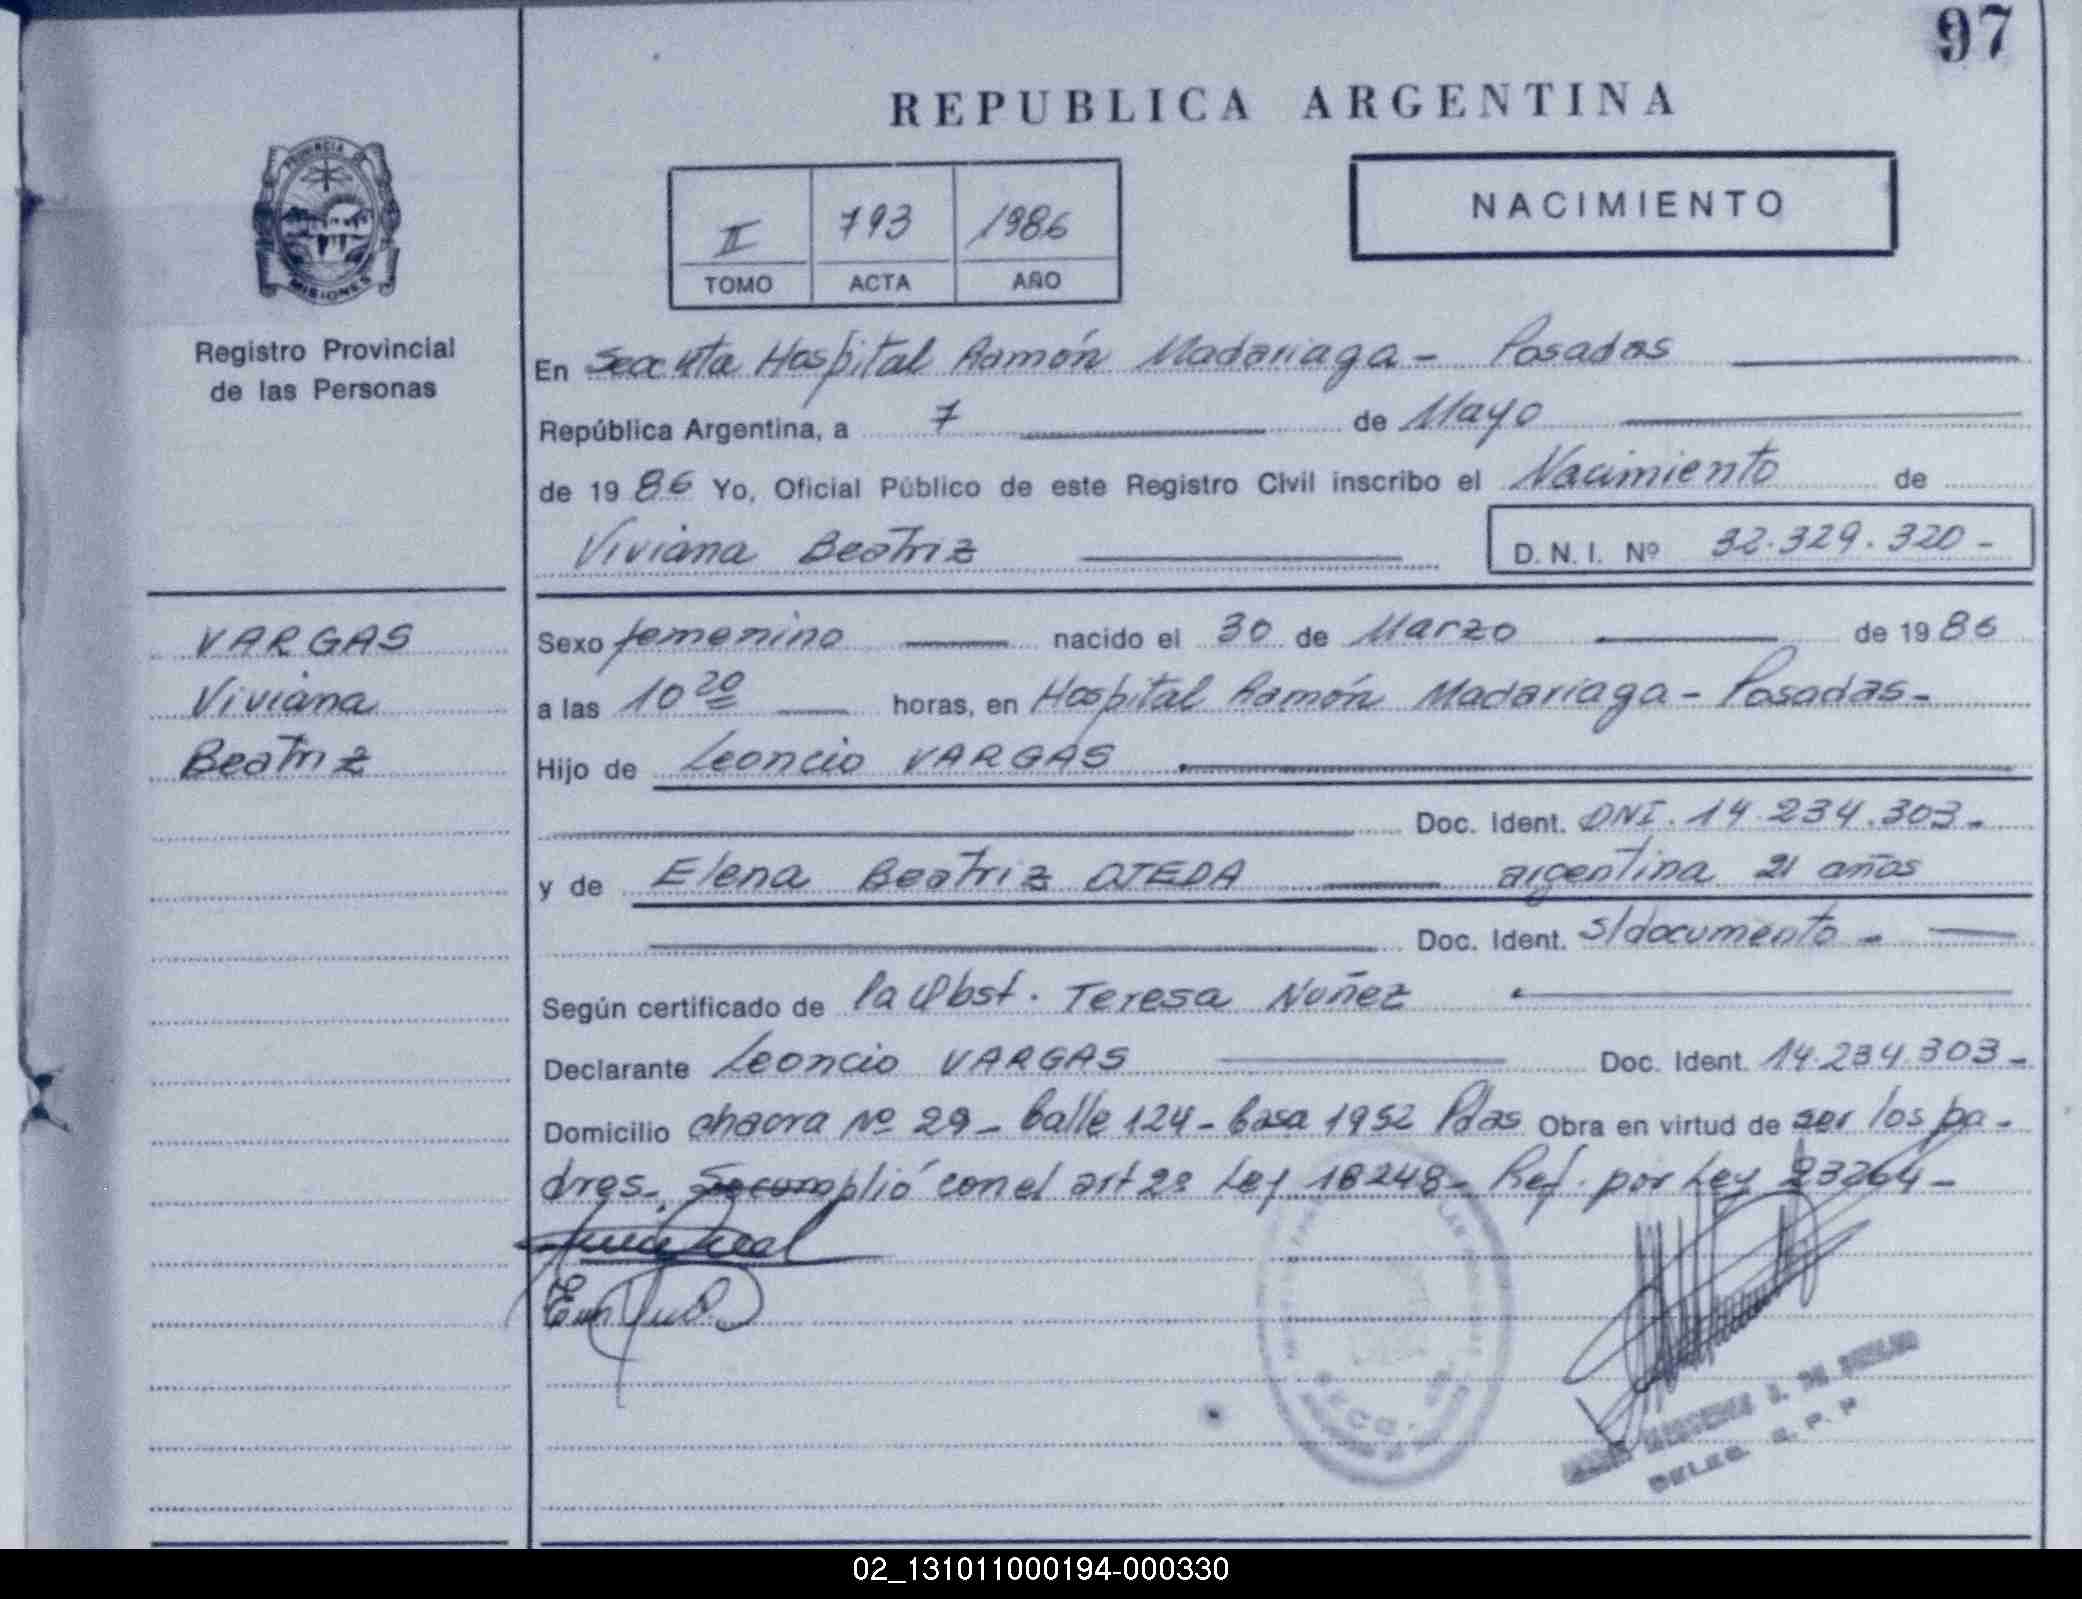 97
REPUBLICA ARGENTINA
PROVINCIA DE
MISIONES
II 793 1986
TOMO ACTA AÑO
NACIMIENTO
Registro Provincial
de las Personas
En Hospital Ramón Madariaga - Posadas
República Argentina, a 7 de Mayo
de 1986 Yo, Oficial Público de este Registro Civil inscribo el Nacimiento de
Viviana Beatriz D. N. I. Nº 32.329.320-
VARGAS
Viviana
Beatriz
Sexo femenino nacido el 30 de Marzo de 1986
a las 10 20 horas, en Hospital Ramón Madariaga - Posadas-
Hijo de Leoncio VARGAS
Doc. Ident. DNI. 14.234.303-
y de Elena Beatriz OJEDA argentina 21 años
Doc. Ident. s/documento-
Según certificado de la Obst. Teresa Nuñez
Declarante Leoncio VARGAS Doc. Ident. 14.234.303-
Domicilio chacra Nº 29- Calle 124- Casa 1952 Pdas Obra en virtud de ser los pa-
dres. Se cumplió con el art 2º Ley 18248- Ref. por Ley 23264-
DELEG. R. P. P.
02_131011000194-000330